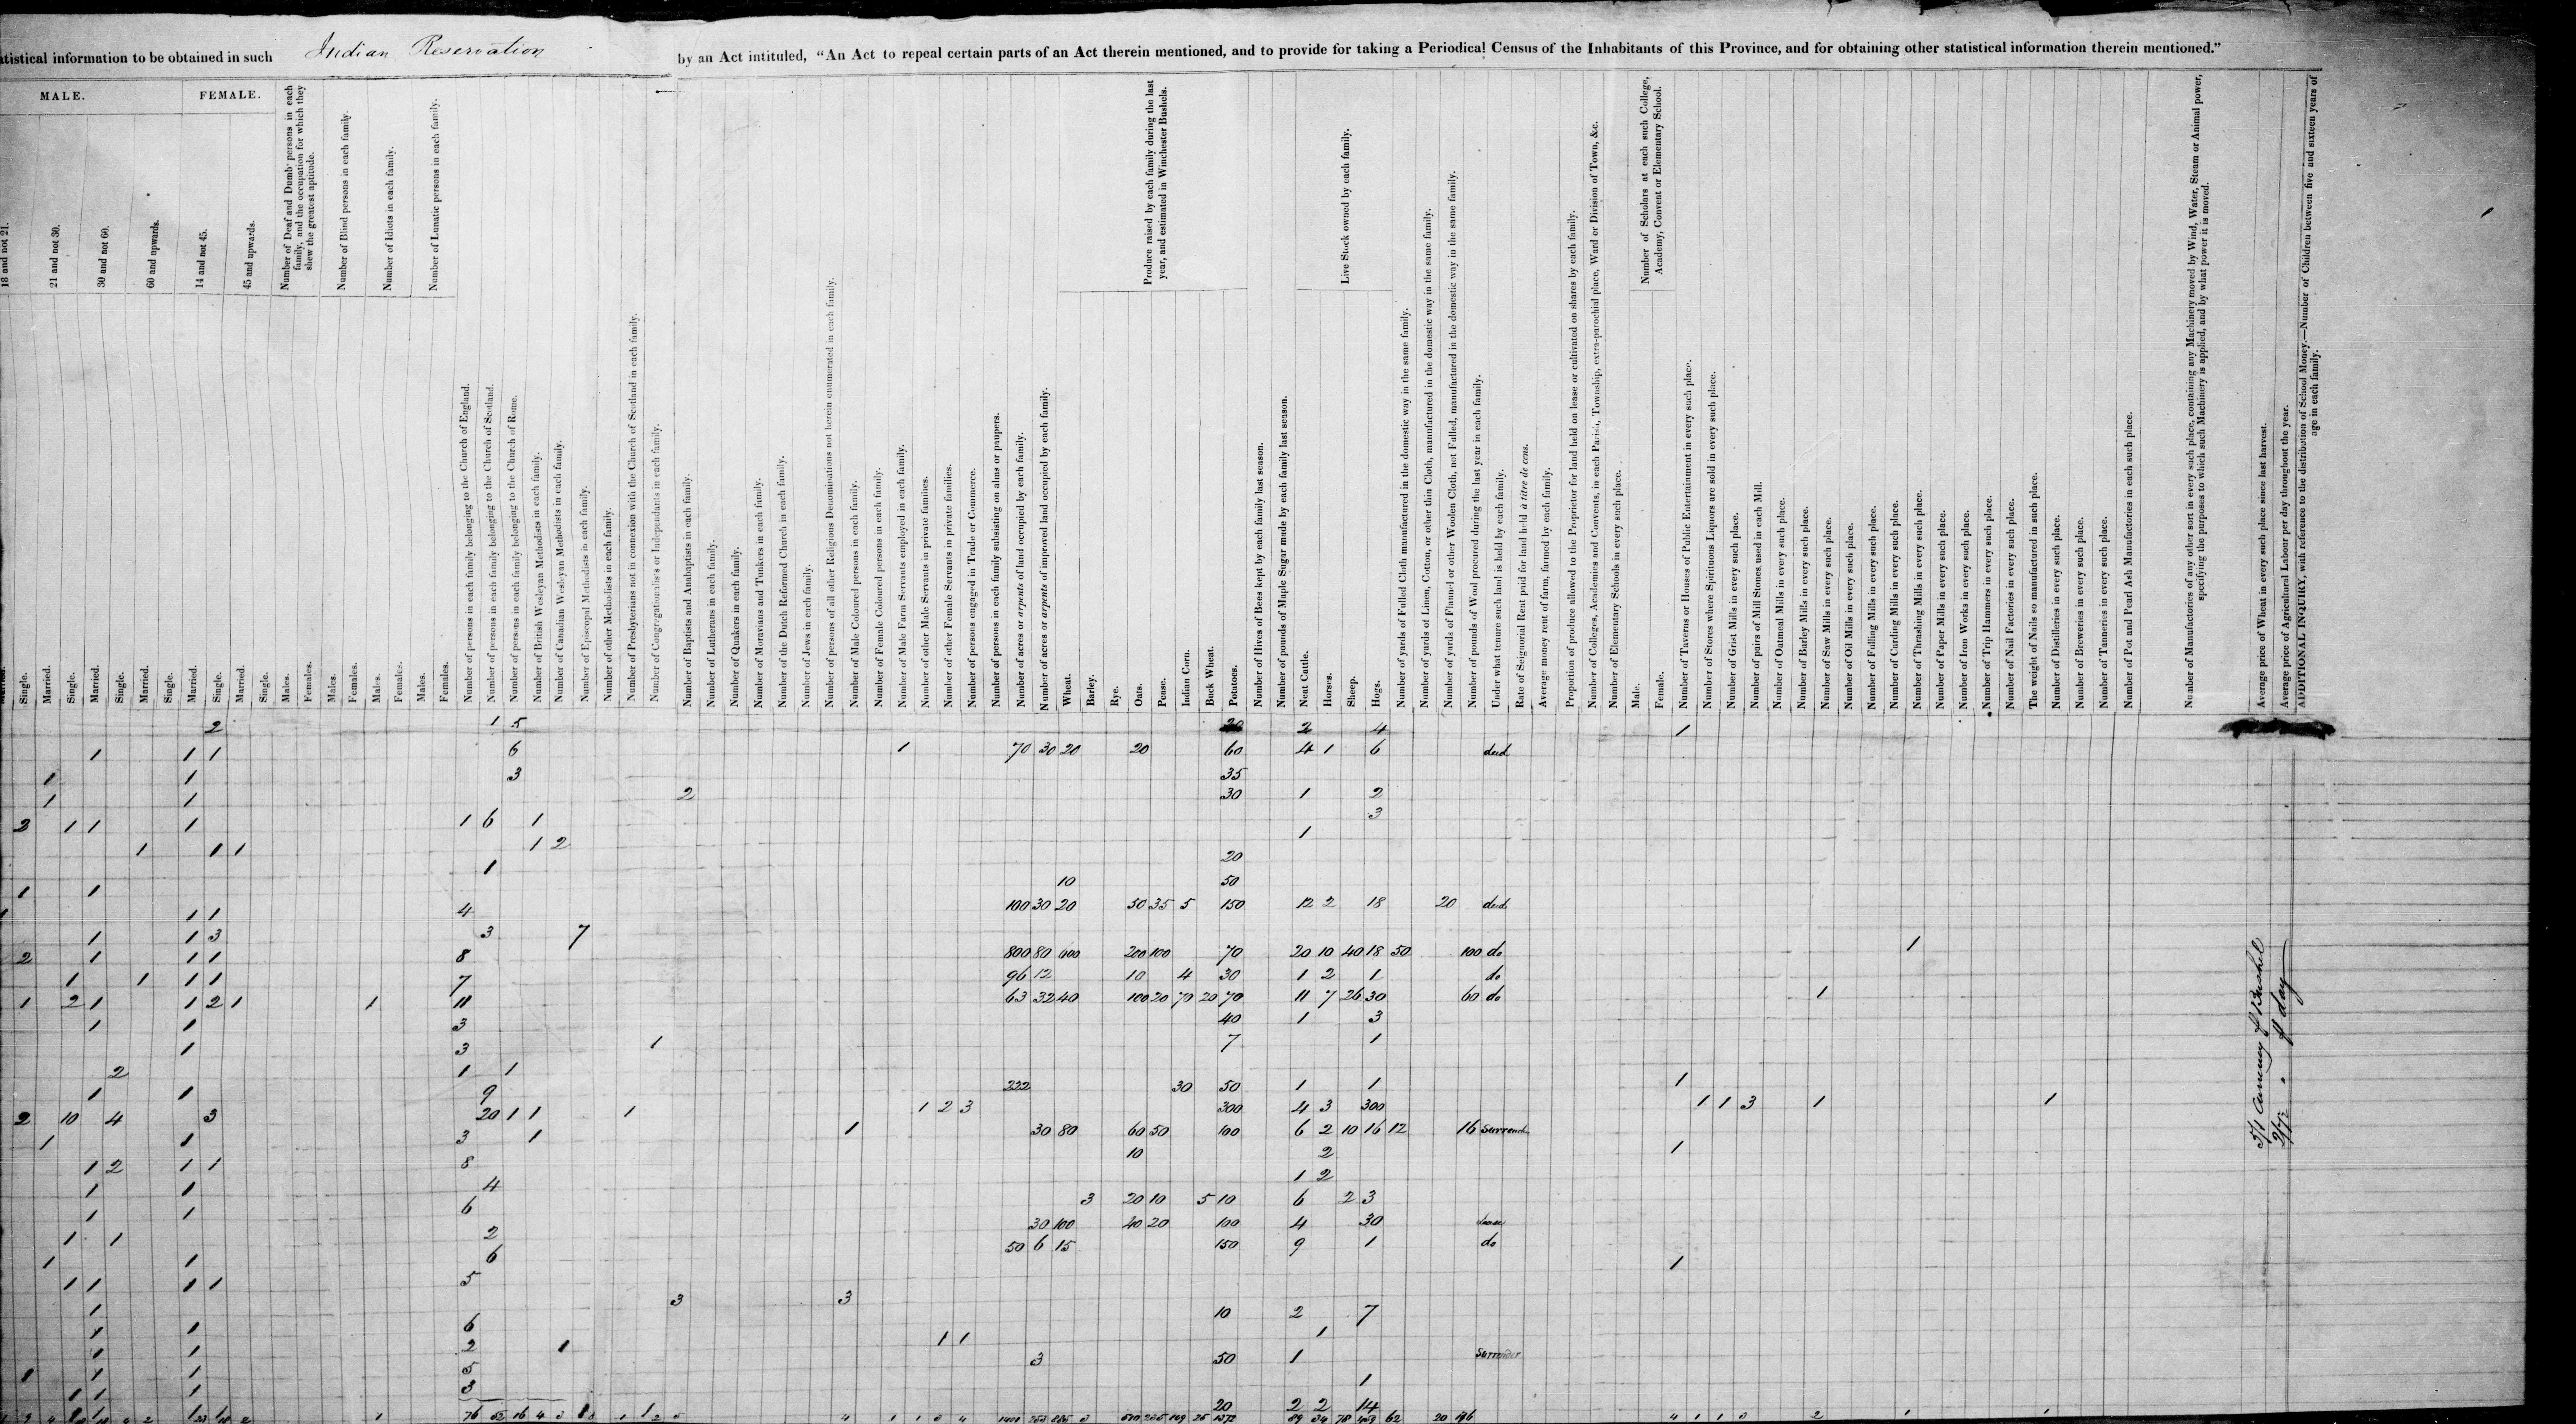 atistical information to be obtained in such Indian Reservation by an Act intituled, “An Act to repeal certain parts of an Act therein mentioned, and to provide for taking a Periodical Census of the Inhabitants of this Province, and for obtaining other statistical information therein mentioned.”
MALE.
FEMALE.
18 and not 21.
21 and not 30.
30 and not 60.
60 and upwards.
14 and not 45.
45 and upwards.
Number of Deaf and Dumb persons in each family, and the occupation for which they shew the greatest aptitude.
Number of Blind persons in each family.
Number of Idiots in each family.
Number of Lunatic persons in each family.
Single.
Married.
Single.
Married.
Single.
Married.
Single.
Married.
Single.
Married.
Single.
Males.
Females.
Males.
Females.
Males.
Females.
Males.
Females.
Number of persons in each family belonging to the Church of England.
Number of persons in each family belonging to the Church of Scotland.
Number of persons in each family belonging to the Church of Rome.
Number of British Wesleyan Methodists in each family.
Number of Canadian Wesleyan Methodists in each family.
Number of Episcopal Methodists in each family.
Number of other Methodists in each family.
Number of Presbyterians not in connexion with the Church of Scotland in each family.
Number of Congregationalists or Independants in each family.
Number of Baptists and Anabaptists in each family.
Number of Lutherans in each family.
Number of Quakers in each family.
Number of Moravians and Tunkers in each family.
Number of the Dutch Reformed Church in each family.
Number of Jews in each family.
Number of persons of all other Religious Denominations not herein enumerated in each family.
Number of Male Coloured persons in each family.
Number of Female Coloured persons in each family.
Number of Male Farm Servants employed in each family.
Number of other Male Servants in private families.
Number of other Female Servants in private families.
Number of persons engaged in Trade or Commerce.
Number of persons in each family subsisting on alms or paupers.
Number of acres or arpents of land occupied by each family.
Number of acres or arpents of improved land occupied by each family.
Produce raised by each family during the last year, and estimated in Winchester Bushels.
Wheat.
Barley.
Rye.
Oats.
Pease.
Indian Corn.
Buck Wheat.
Potatoes.
Number of Hives of Bees kept by each family last season.
Number of pounds of Maple Sugar made by each family last season.
Live Stock owned by each family.
Neat Cattle.
Horses.
Sheep.
Hogs.
Number of yards of Fulled Cloth manufactured in the domestic way in the same family.
Number of yards of Linen, Cotton, or other thin Cloth, manufactured in the domestic way in the same family.
Number of yards of Flannel or other Woolen Cloth, not Fulled, manufactured in the domestic way in the same family.
Number of pounds of Wool procured during the last year in each family.
Under what tenure such land is held by each family.
Rate of Seignorial Rent paid for land held à titre de cens.
Average money rent of farm, farmed by each family.
Proportion of produce allowed to the Proprietor for land held on lease or cultivated on shares by each family.
Number of Colleges, Academies and Convents, in each Parish, Township, extra-parochial place, Ward or Division of Town, &c.
Number of Elementary Schools in every such place.
Number of Scholars at each such College, Academy, Convent or Elementary School.
Male.
Female.
Number of Taverns or Houses of Public Entertainment in every such place.
Number of Stores where Spirituous Liquors are sold in every such place.
Number of Grist Mills in every such place.
Number of pairs of Mill Stones used in each Mill.
Number of Oatmeal Mills in every such place.
Number of Barley Mills in every such place.
Number of Saw Mills in every such place.
Number of Oil Mills in every such place.
Number of Fulling Mills in every such place.
Number of Carding Mills in every such place.
Number of Thrashing Mills in every such place.
Number of Paper Mills in every such place.
Number of Iron Works in every such place.
Number of Trip Hammers in every such place.
Number of Nail Factories in every such place.
The weight of Nails so manufactured in such place.
Number of Distilleries in every such place.
Number of Breweries in every such place.
Number of Tanneries in every such place.
Number of Pot and Pearl Ash Manufactories in each such place.
Number of Manufactories of any other sort in every such place, containing any Machinery moved by Wind, Water, Steam or Animal power, specifying the purposes to which such Machinery is applied, and by what power it is moved.
Average price of Wheat in every such place since last harvest.
Average price of Agricultural Labour per day throughout the year.
ADDITIONAL INQUIRY, with reference to the distribution of School Money.—Number of Children between five and sixteen years of age in each family.
2 1 5 2 4 1
1 1 1 6 1 70 30 20 20 60 4 1 6 deed
1 1 3 35
1 1 2 30 1 2
2 1 1 1 1 6 1 3
1 1 1 1 2 1
1 20
1 1 10 50
1 1 4 100 30 20 50 35 5 150 12 2 18 20 deed
1 1 3 3 7 1
2 1 1 1 8 800 80 200 100 70 20 10 40 18 50 100 do
1 1 1 1 7 96 12 10 4 30 1 2 1 do
1 2 1 1 2 1 1 11 63 32 40 100 20 70 20 70 11 7 26 30 60 do 1
1 1 3 40 1 3
1 3 1 7 1
2 1 1
1 1 9 222 30 50 1 1 1
2 10 4 3 20 1 1 1 1 2 3 300 4 3 300 1 1 3 1 1
1 1 3 1 1 30 80 60 50 100 6 2 10 16 12 16
1 2 1 1 8 10 2 1
1 1 4 1 2
1 1 6 3 20 10 5 10 6 2 3
1 1 2 30 100 40 20 100 4 30
1 1 6 50 6 15 150 9 1 do
1 1 1 1 5 1
1 3 3
1 1 6 10 2 7
1 1 2 1 1 1 1
1 1 1 5 3 50 1 Surrender
1 1 1 3 1
20 2 2 14
76 52 16 4 3
day